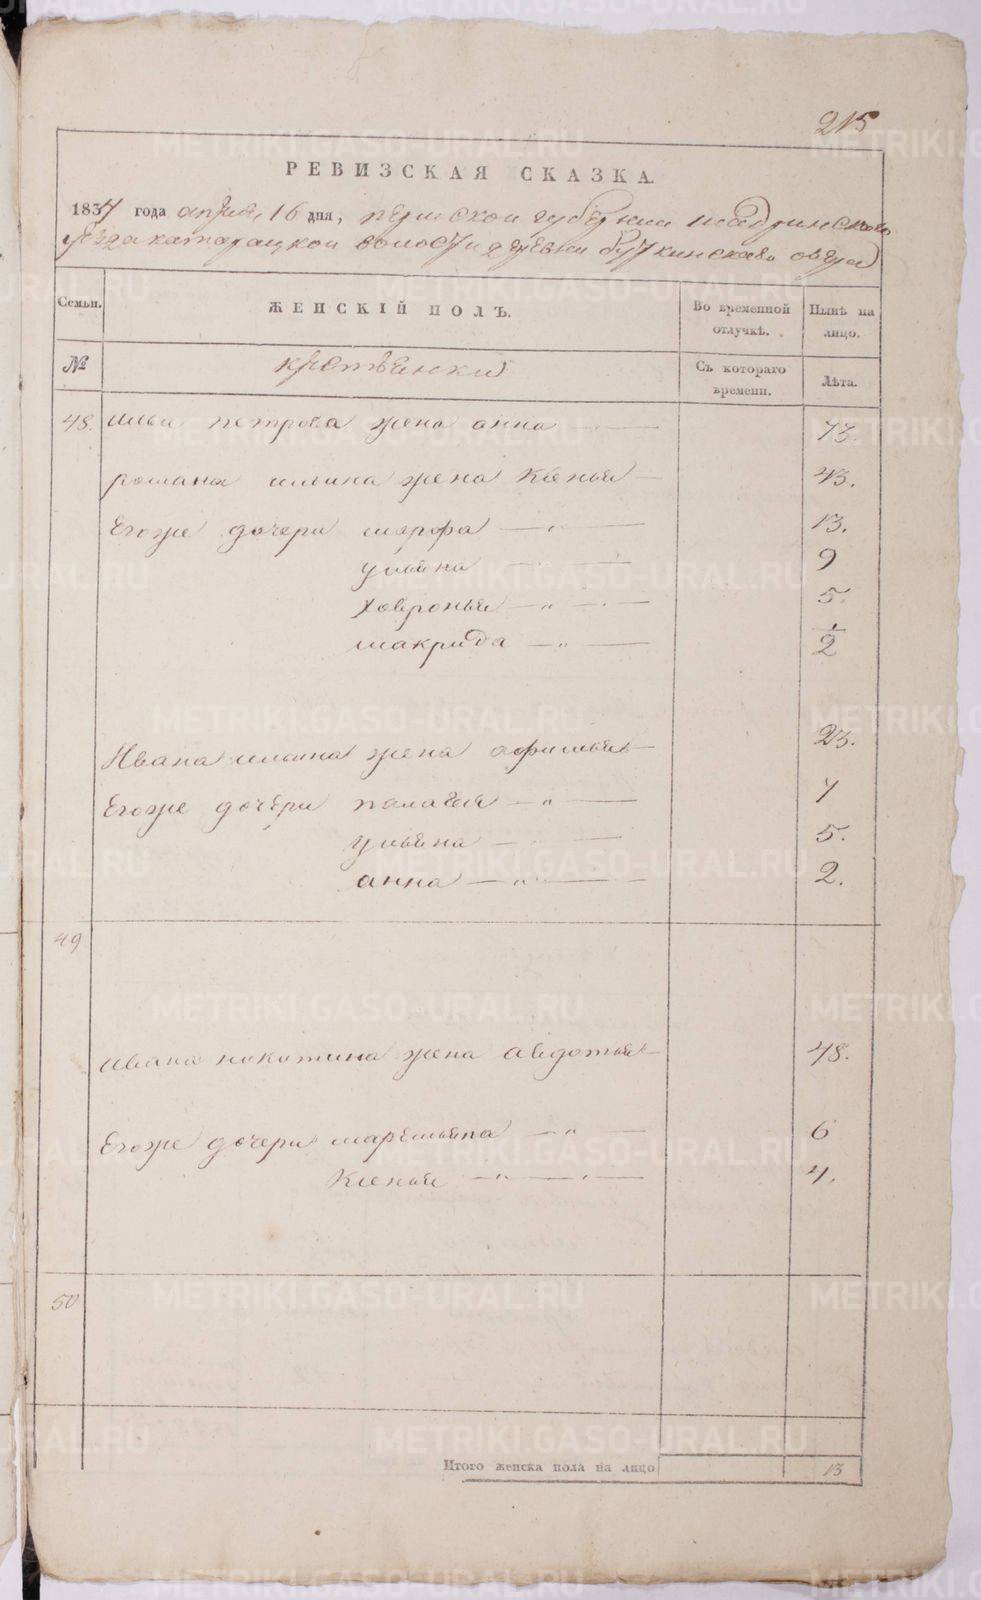 215
РЕВИЗСКАЯ СКАЗКА.
1834 года апреля 16 дня, пермской губернии шадринскаго
уезда катарацкой волости деревни Буткинскаго озера
Семьи. ЖЕНСКІЙ ПОЛЪ. Во временной отлучкѣ. Нынѣ на лицо.
№ крестьянки Съ котораго времени. Лѣта.
48. ильи петрова жена анна 73.
романа ильина жена Ксенья 43.
Егоже дочери марфа 13.
ульяна 9
ховронья 5.
макрида 1/2
Ивана ильина жена афимья 23.
Егоже дочери палагея 7
ульяна 5.
анна 2.
49
ивана никитина жена авдотья 48.
Егоже дочери маремьяна 6
Ксенья 4.
50
Итого женска пола на лицо 13
METRIKI.GASO-URAL.RU